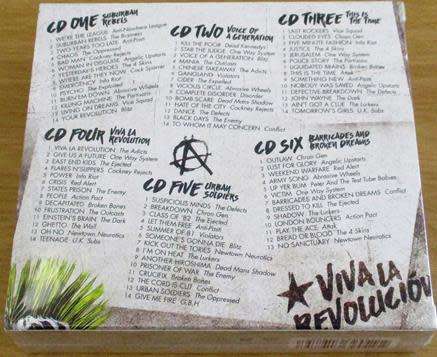 CD ONE SUBURBAN REBELS
1 WE'RE THE LEAGUE Anti-Nowhere League
2 SUBURBAN REBELS The Business
3 TWO YEARS TOO LATE Anti-Pasti
4 CHAOS The Oppressed
5 BAD MAN Cockney Rejects
6 LIFE IN DISGUISE Angelic Upstarts
7 YESTERDAY'S HEROES The 4 Skins
8 WHERE ARE THEY NOW Cock Sparrer
9 EMERGENCY 999
10 PSYCHO The Exploited
12 KILLING MACHINE Abrasive Wheels
13 Vice Squad
14 YOUR REVOLUTION Blitz
CD TWO VOICE OF A GENERATION
1 KILL THE POOR Dead Kennedys
2 JERK THE JUDGE One Way System
3 VOICE OF A GENERATION Blitz
4 MANIA The Outcasts
5 CHINESE TAKEAWAY The Adicts
6 GANGLAND Violators
7 CODE The Enemy
8 VICIOUS CIRCLE Abrasive Wheels
9 COMPLETE DISORDER Disorder
10 BOMB SCARE Dead Mans Shadow
11 HATE OF THE CITY Cockney Rejects
12 DANCE The Defects
13 BLACK DAYS The Enemy
14 TO WHOM IT MAY CONCERN Conflict
CD THREE THIS IS THE TIME
1 LAST ROCKERS Vice Squad
2 JERUSALEM One Way System
3 CLOUDED EYES Chaos Dept
4 FIVE MINUTE FASHION Infa Riot
5 JUSTICE The 4 Skins
6 STAND UP Angelic Upstarts
7 POLICE STORY The Partisans
8 LIQUIDATED BRAINS Broken Bones
9 THIS IS THE TIME Attak
10 SOMETHING NEW Anti-Pasti
10 NOBODY WAS SAVED Angelic Upstarts
11 DEFECTIVE BREAKDOWN The Defects
12 JOHN WAYNE The Dark
13 AIN'T GOT A CLUE The Lurkers
14 TOMORROW'S GIRLS U.K. Subs
CD FOUR VIVA LA REVOLUTION
1 VIVA LA REVOLUTION The Adicts
2 GIVE US A FUTURE One Way System
3 EAST END KIDS The Ejected
4 FLARES 'N SLIPPERS Cockney Rejects
5 POWER Infa Riot
6 CRISIS Red Alert
7 STATES PRISON The Enemy
8 PEOPLE Action Pact
9 DECAPITATED Broken Bones
10 FRUSTRATION The Outcasts
11 EINSTEIN'S BRAIN The Dark
12 GHETTO The Wall
13 OH NO Newtown Neurotics
14 TEENAGE U.K. Subs
CD FIVE URBAN SOLDIERS
1 SUSPICIOUS MINDS The Defects
2 BREAKDOWN Chron Gen
3 CLASS OF '82 The Ejected
4 LET ME FREE Anti-Pasti
5 SUMMER OF '81 Violators
6 SOMEONE'S GONNA DIE Blitz
7 KICK OUT THE TORIES Newtown Neurotics
8 I'M ON HEAT The Lurkers
9 ANOTHER HIROSHIMA Dead Mans Shadow
10 PRISONER OF WAR The Enemy
11 CRUCIFIX Broken Bones
12 THE CORD IS CUT Conflict
13 URBAN SOLDIERS The Oppressed
14 GIVE ME FIRE G.B.H
CD SIX BARRICADES AND BROKEN DREAMS
1 OUTLAW Chron Gen
2 LUST FOR GLORY Angelic Upstarts
3 WEEKEND WARFARE Red Alert
4 ARMY SONG Abrasive Wheels
5 UP YER BUM Peter And The Test Tube Babies
6 VICTIM One Way System
7 BARRICADES AND BROKEN DREAMS Conflict
8 DRESSED TO KILL The Ejected
9 SHADOW The Lurkers
10 LONDON BOUNCERS Action Pact
11 PLAY THE ACE Attak
12 BREAD OR BLOOD The 4 Skins
13 NO SANCTUARY Newtown Neurotics
VIVA LA
REVOLUCIÓN